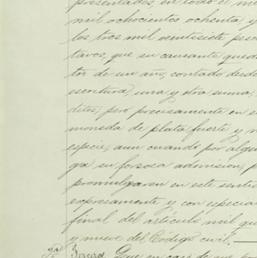 presentados, en todo el me
mil ochocientos ochenta, y
los tres mil veintisiete pesos
tavos, que su causante queda
tor de un año, contado desde
escritura, una y otra suma,
ditos, pero precisamente en
moneda de plata fuerte y n
especie, aun cuando por algu
ga su forzosa admision, p
promulgaren en este sentido
expresamente y con especia
final del artículo mil qu
y nueve del Código civil.
Que en caso de que por